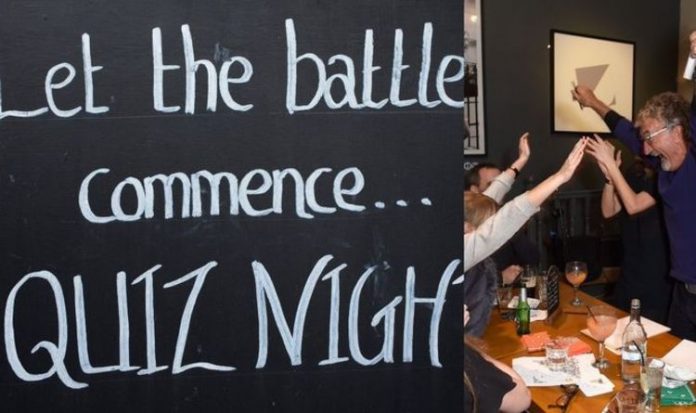 Let the battle
commence...
QUIZ NIGH